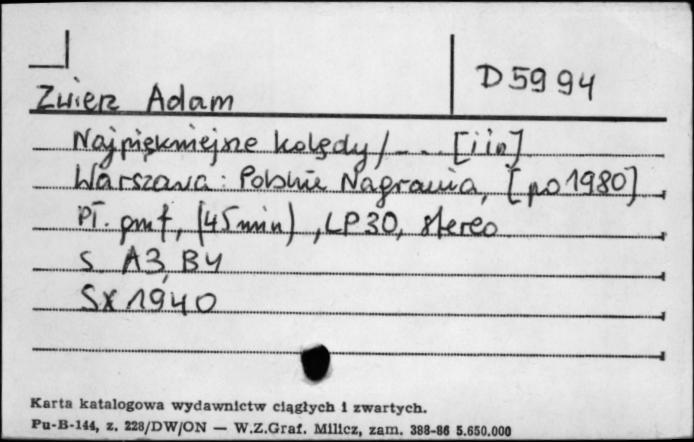 D 5994
Zwierz Adam
Najpiękniejsze kolędy / - . . [i in]
Warszawa : Polskie Nagrania, [po 1980]
Pł. gmf, (45 min), LP 30, stereo
s. A3, B4
SX 1940
Karta katalogowa wydawnictw ciągłych i zwartych.
Pu-B-144, z. 228/DW/ON — W.Z.Graf. Milicz, zam. 388-86 5.650.000